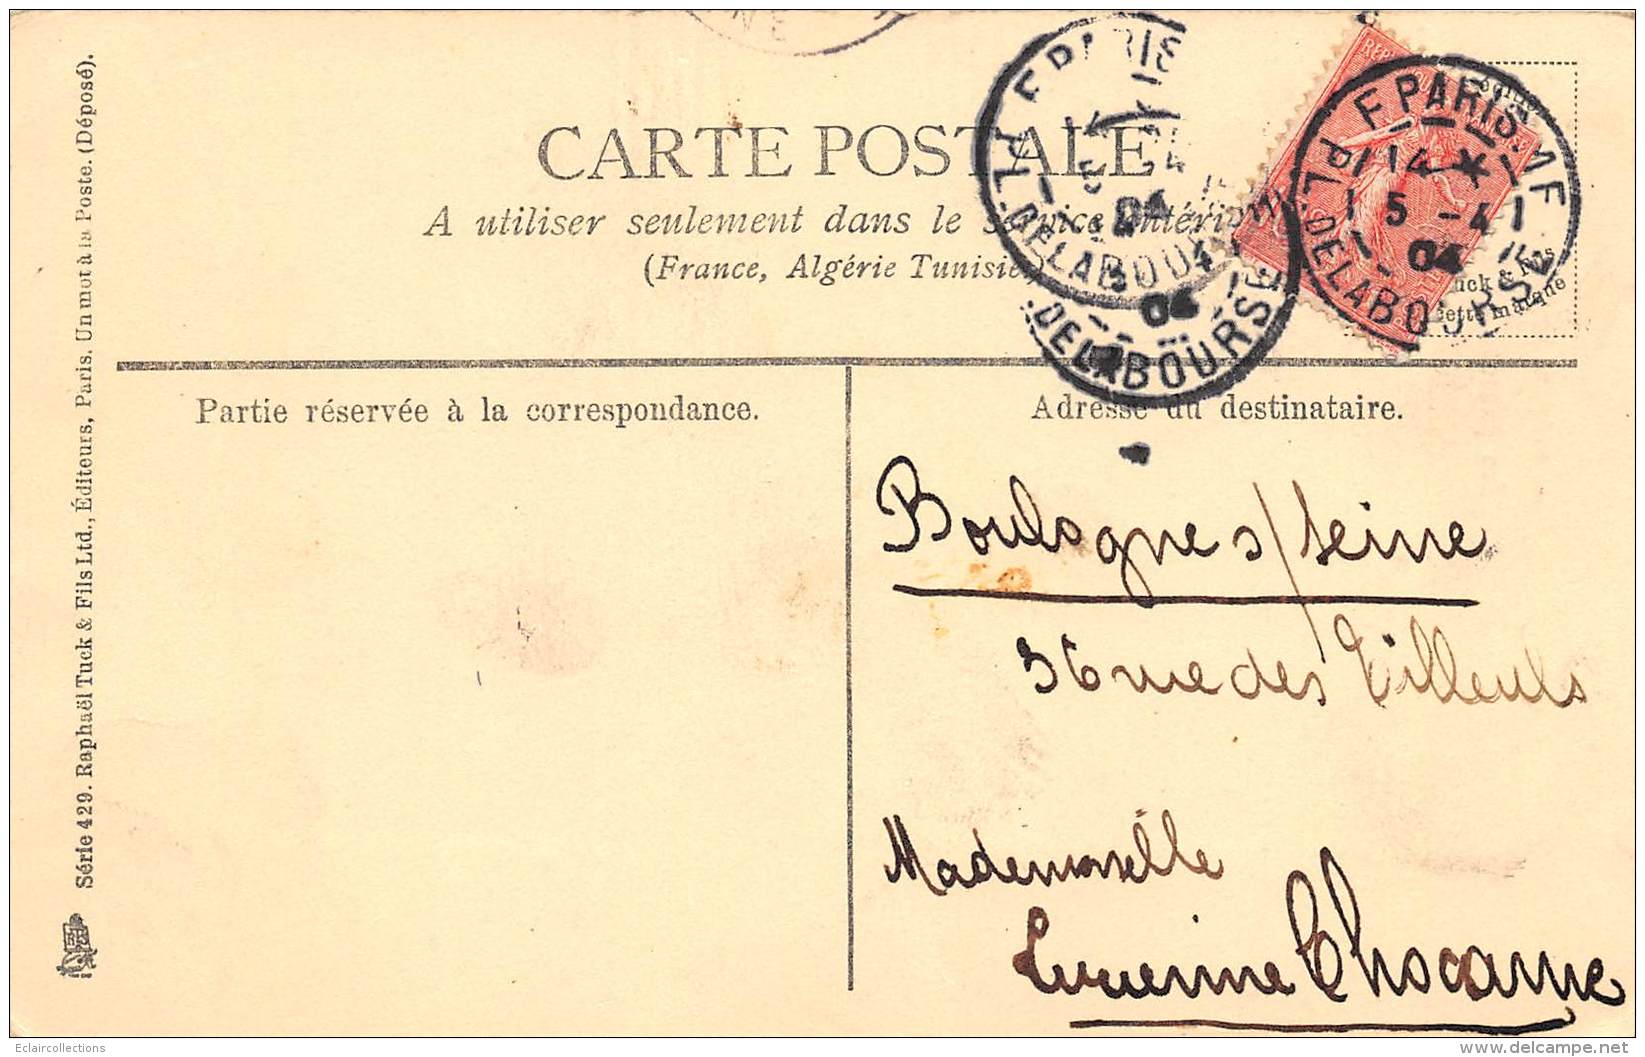 CARTE POSTALE
A utiliser seulement dans le service intérieur
(France, Algérie Tunisie)
Partie réservée à la correspondance.
Adresse du destinataire.
Boulogne s/Seine
36 rue des Tilleuls
Mademoiselle
Lucienne Chocarne
Série 429. Raphaël Tuck & Fils Ltd., Éditeurs, Paris. Un mot à la Poste. (Déposé).
PARIS
PL. DE LA BOURSE
04
PARIS
PL. DE LA BOURSE
14 *
5 -4
04
DE LA BOURSE
04
uck & fils
cette marque
NE
Eclaircollections
delcampe.net